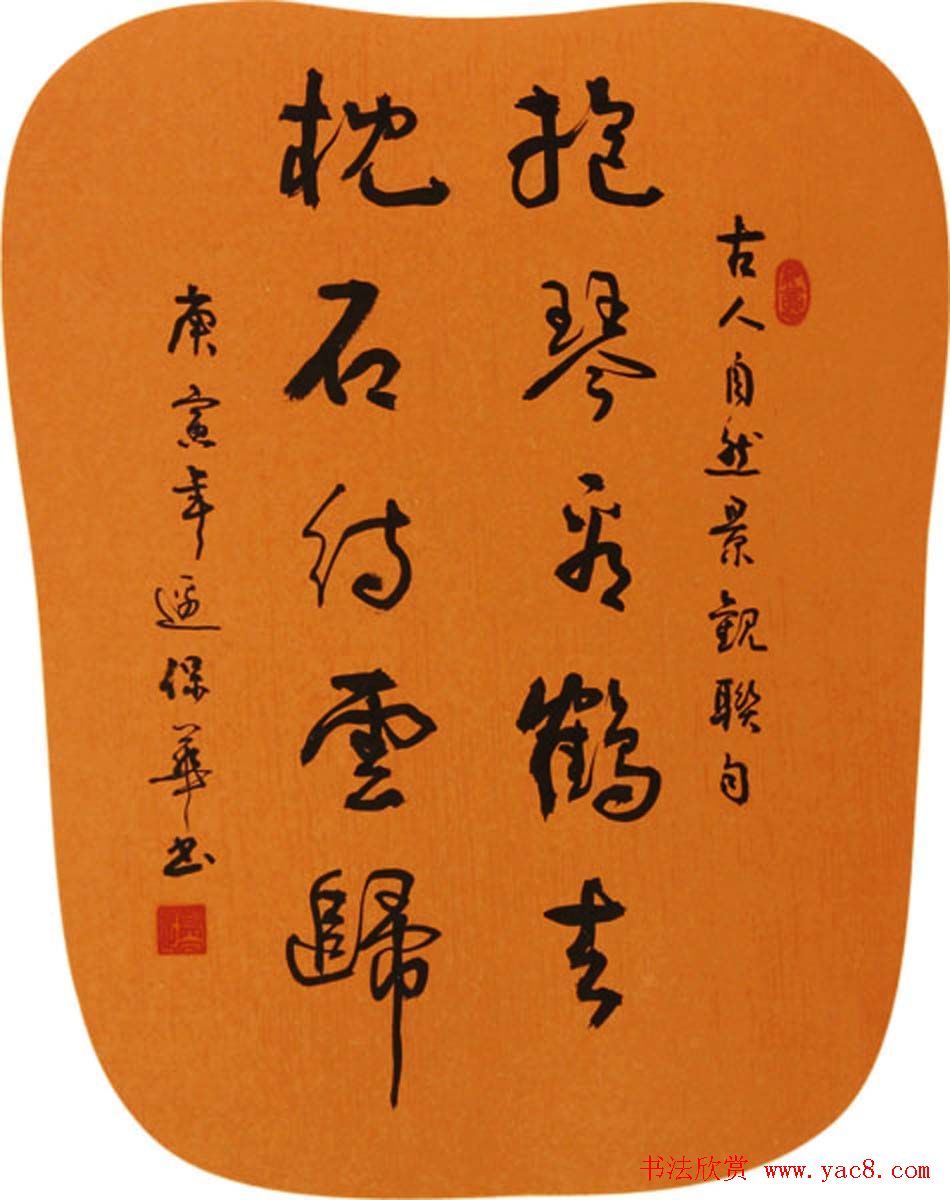 古人自然景觀聯句
抱琴看鶴去
枕石待雲歸
庚寅年邊保華书
书法欣赏 www.yac8.com